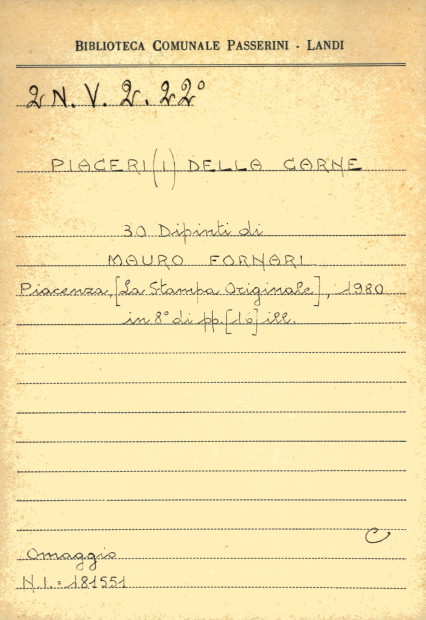 BIBLIOTECA COMUNALE PASSERINI - LANDI
2 N. V. 2. 22°
PIACERI (I) DELLA CARNE
30 Dipinti di
MAURO FORNARI
Piacenza, [La Stampa Originale], 1980
in 8° di pp. [10] ill.
C
Omaggio
N.I. = 181551